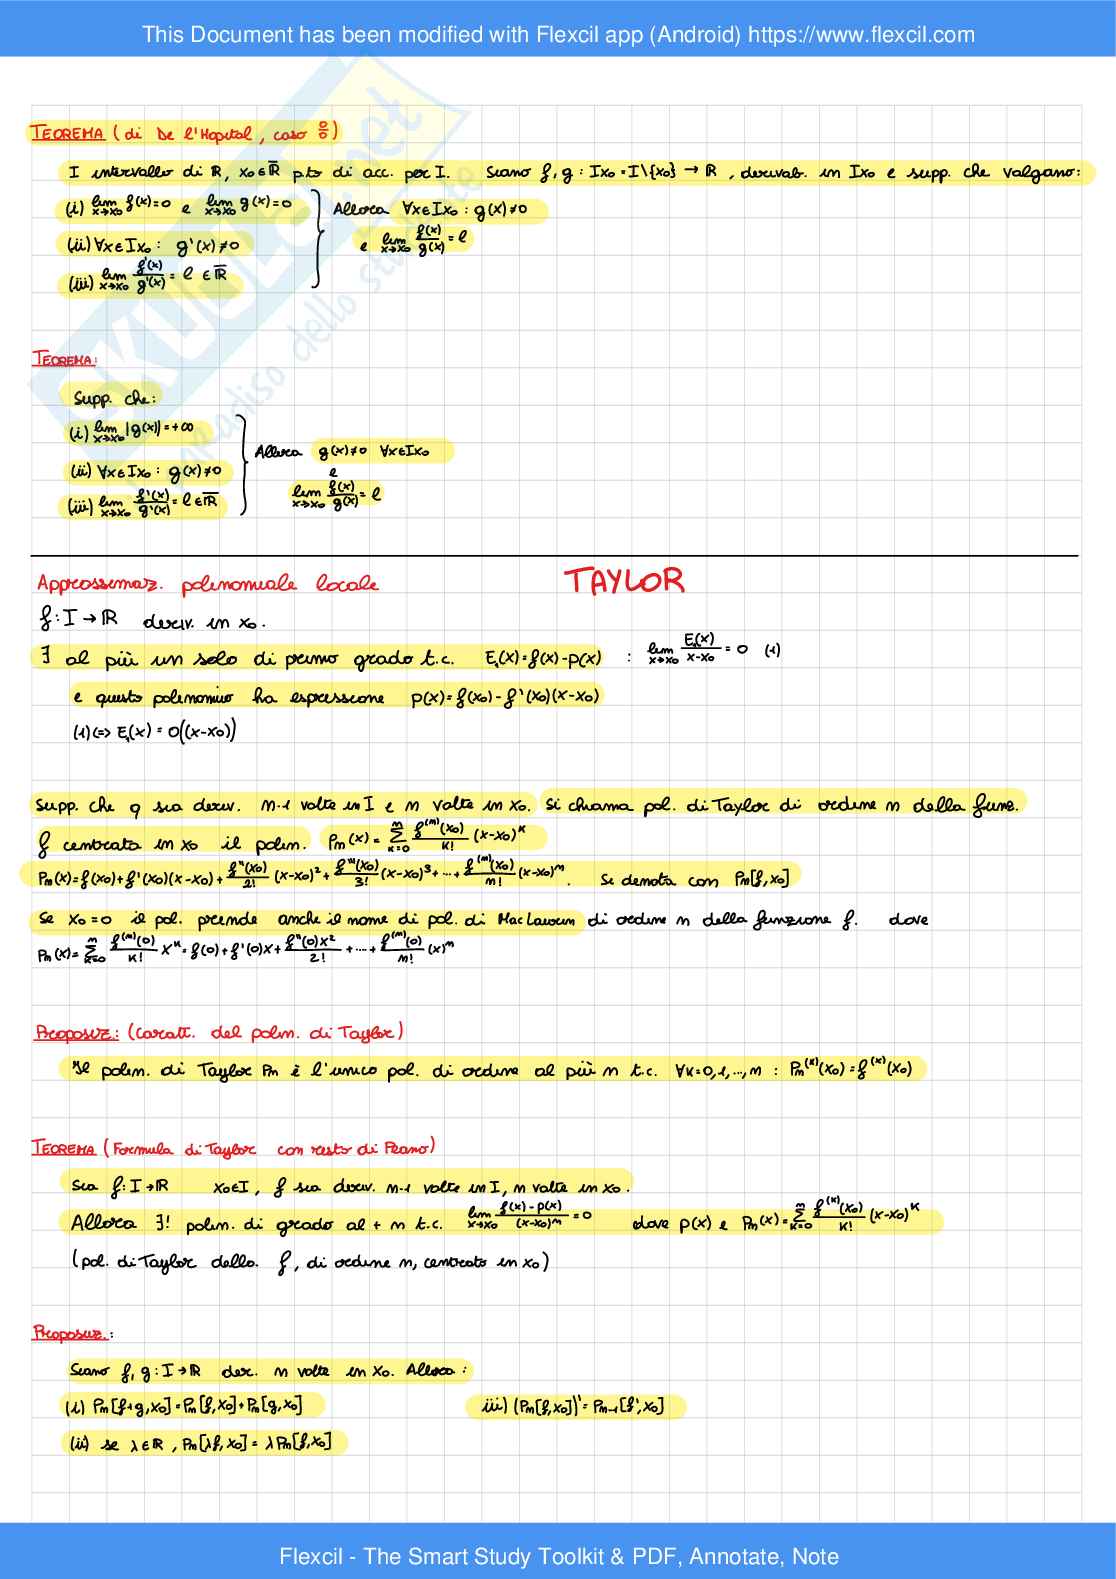 This Document has been modified with Flexcil app (Android) https://www.flexcil.com
TEOREMA (di De l'Hopital, caso 0/0)
I intervallo di ℝ, x₀∈ℝ̅ p.to di acc. per I. Siano f,g : Ix₀=I\{x₀} → ℝ, derivab. in Ix₀ e supp. che valgano:
(i) lim x→x₀ f(x)=0 e lim x→x₀ g(x)=0 } Allora ∀x∈Ix₀ : g(x)≠0
(ii) ∀x∈Ix₀ : g'(x)≠0 e lim x→x₀ f(x)/g(x) = l
(iii) lim x→x₀ f'(x)/g'(x) = l ∈ℝ̅
TEOREMA:
Supp. che:
(i) lim x→x₀ |g(x)|=+∞
(ii) ∀x∈Ix₀ : g(x)≠0 } Allora g(x)≠0 ∀x∈Ix₀
(iii) lim x→x₀ f'(x)/g'(x) = l∈ℝ̅ e lim x→x₀ f(x)/g(x) = l
Approssimaz. polinomiale locale TAYLOR
f: I → ℝ deriv. in x₀.
∃ al più un solo di primo grado t.c. E₁(x)=f(x)-p(x) : lim x→x₀ E₁(x)/x-x₀ = 0 (1)
e questo polinomio ha espressione p(x)=f(x₀)-f'(x₀)(x-x₀)
(1)<=> E₁(x) = O((x-x₀))
Supp. che q sia deriv. n-1 volte in I e n volte in x₀. Si chiama pol. di Taylor di ordine n della funz.
f centrata in x₀ il polin. Pn(x) = Σ k=0 n f⁽ⁿ⁾(x₀)/k! (x-x₀)ᵏ
Pn(x)=f(x₀)+f'(x₀)(x-x₀)+f''(x₀)/2! (x-x₀)²+f'''(x₀)/3! (x-x₀)³+...+f⁽ⁿ⁾(x₀)/n! (x-x₀)ⁿ. Si denota con Pn[f,x₀]
Se x₀=0 il pol. prende anche il nome di pol. di MacLaurin di ordine n della funzione f. dove
Pn(x)=Σ k=0 n f⁽ⁿ⁾(0)/k! xᵏ=f(0)+f'(0)x+f''(0)x²/2! +....+f⁽ⁿ⁾(0)/n! (x)ⁿ
Proposiz.: (Caratt. del polin. di Taylor)
Il polin. di Taylor Pn è l'unico pol. di ordine al più n t.c. ∀k=0,1,...,n : Pn⁽ᵏ⁾(x₀)=f⁽ᵏ⁾(x₀)
TEOREMA (Formula di Taylor con resto di Peano)
Sia f: I→ℝ x₀∈I, f sia deriv. n-1 volte in I, n volte in x₀.
Allora ∃! polin. di grado al + n t.c. lim x→x₀ f(x)-p(x)/(x-x₀)ⁿ = 0 dove p(x) e Pn(x)=Σ k=0 n f⁽ᵏ⁾(x₀)/k! (x-x₀)ᵏ
(pol. di Taylor della. f, di ordine n, centrato in x₀)
Proposiz.:
Siano f,g: I→ℝ der. n volte in x₀. Allora:
(i) Pn[f+g,x₀]=Pn[f,x₀]+Pn[g,x₀] iii) (Pn[f,x₀])'=Pn-1[f',x₀]
(ii) se λ∈ℝ, Pn[λf,x₀] = λPn[f,x₀]
Flexcil - The Smart Study Toolkit & PDF, Annotate, Note